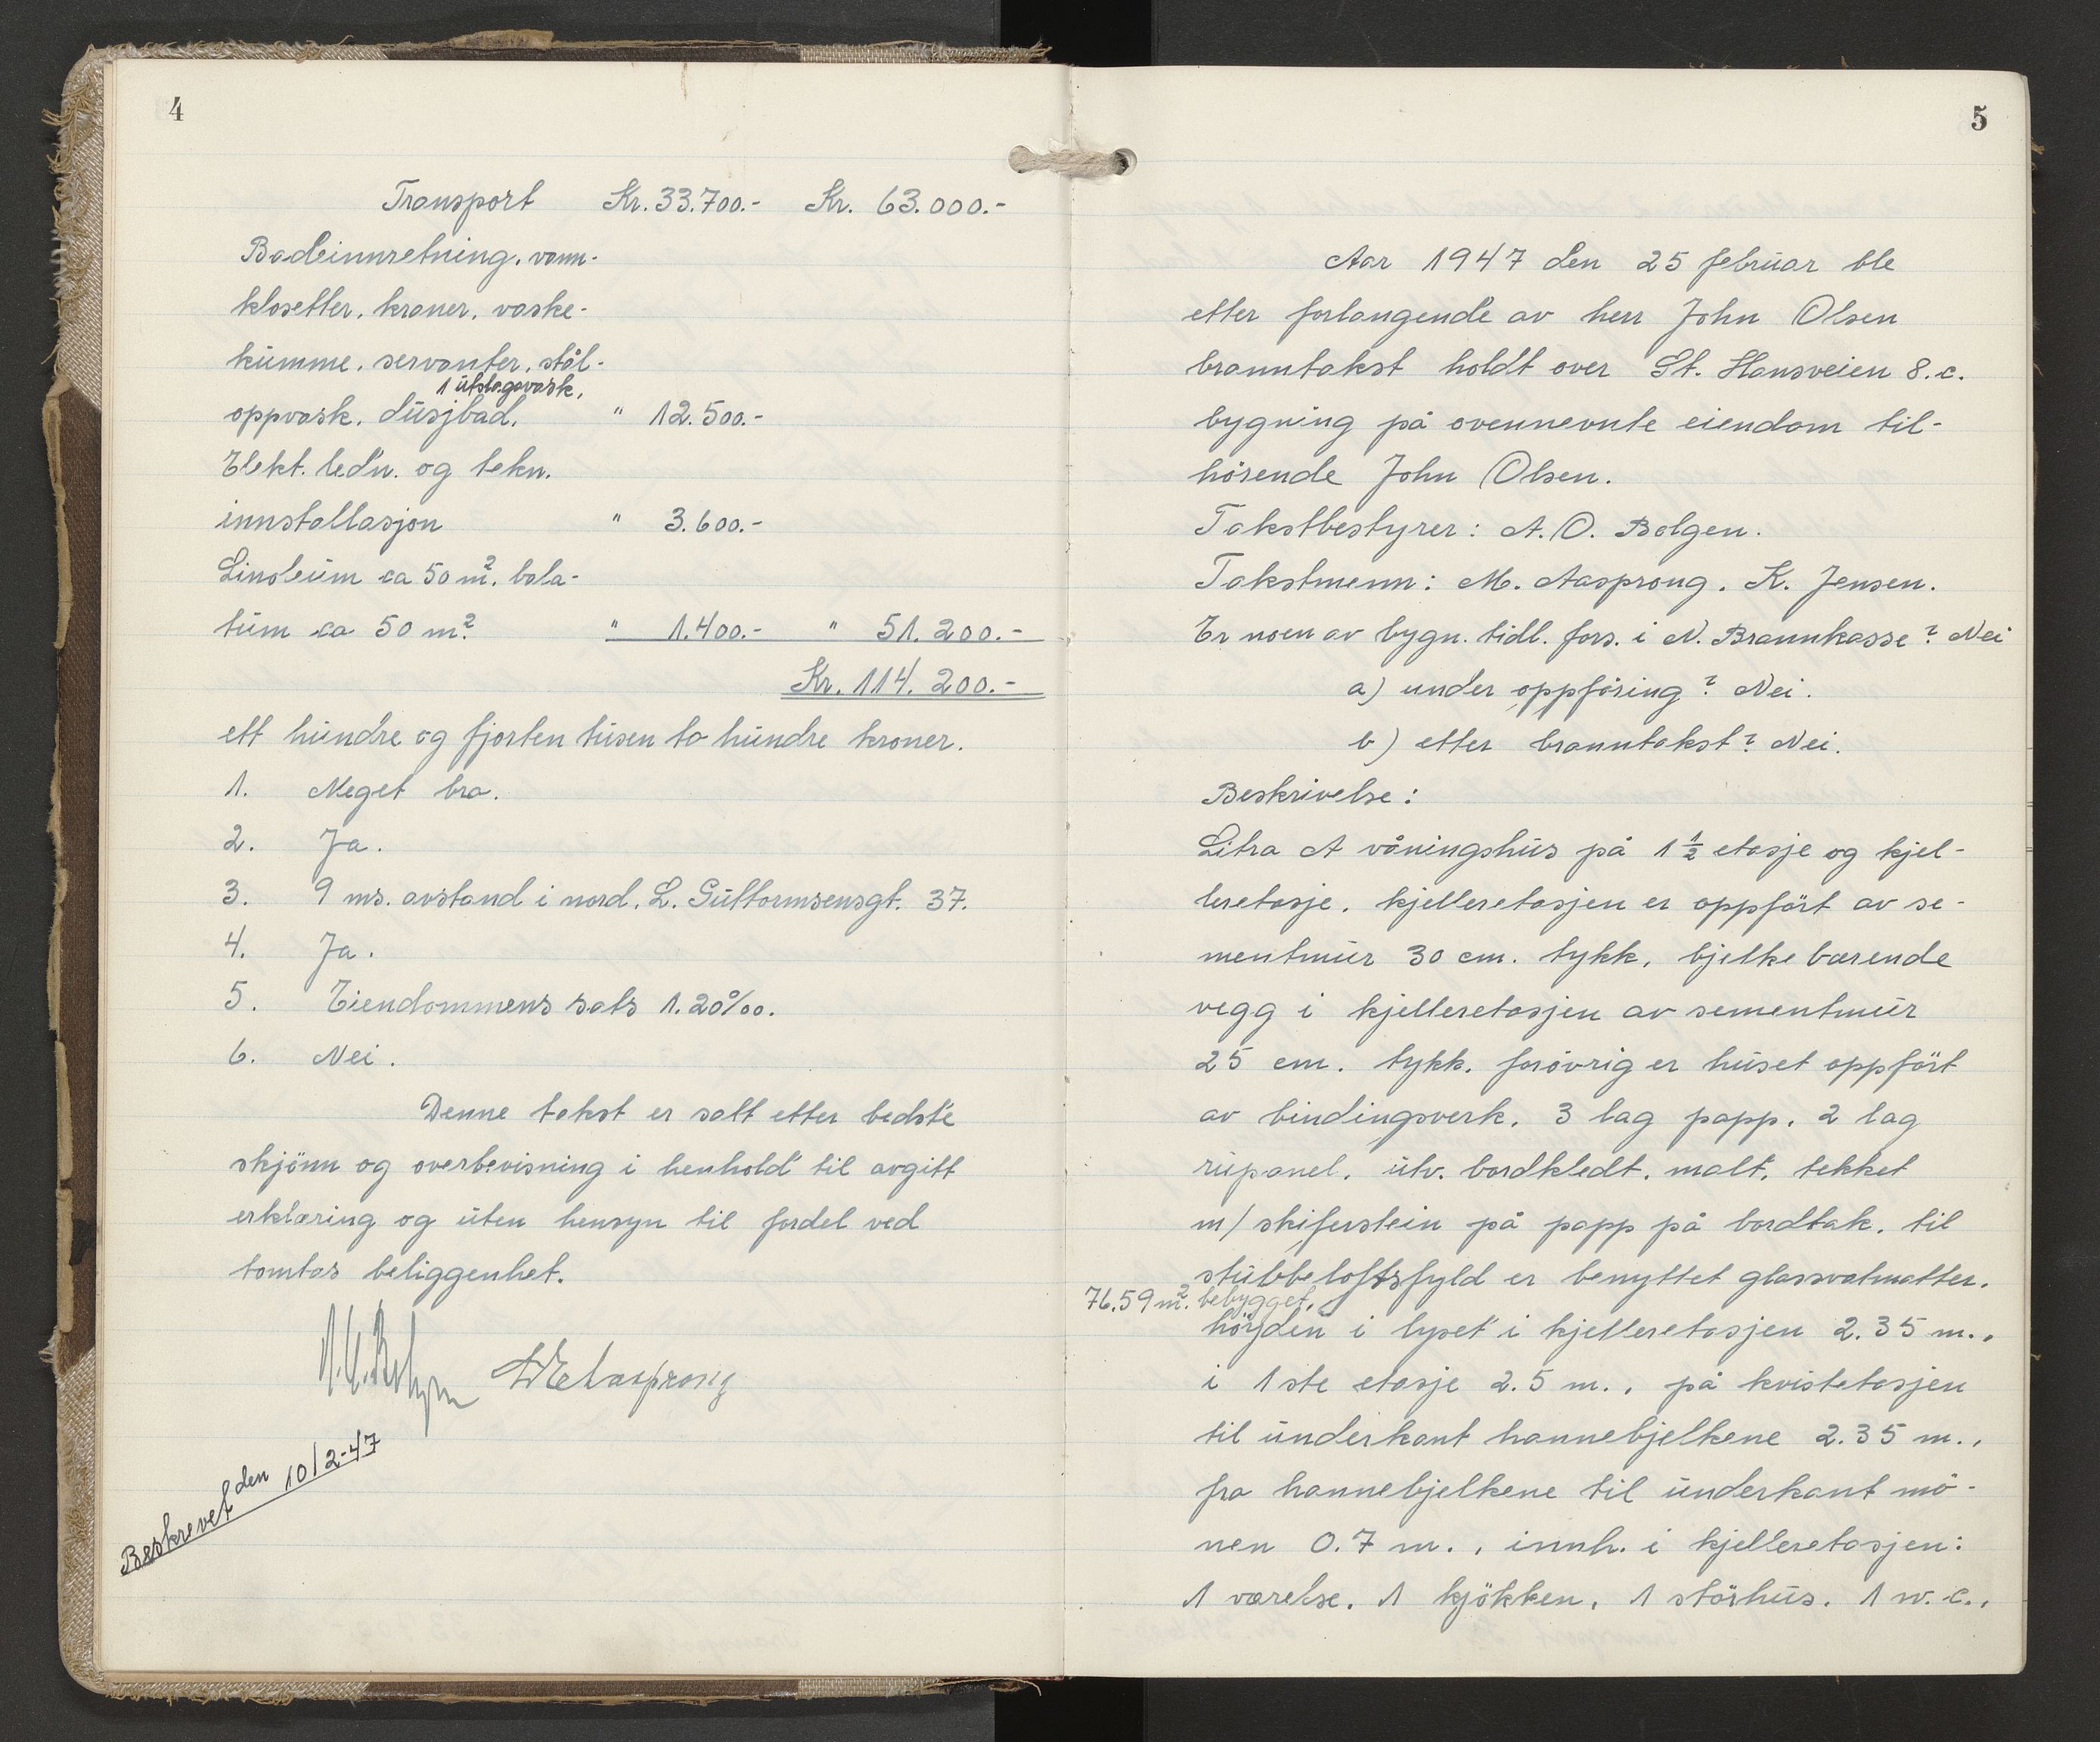 4
Transport Kr. 33.700.- Kr. 63.000.-
Badeinnretning, vann-
klosetter, kraner, vaske-
kumme, servanter, stål-
1 utslagsvask,
oppvask, dusjbad, " 12.500.-
Elekt. ledn. og tekn.
innstallasjon " 3.600.-
Linoleum ca 50 m², bala-
tum ca 50 m². " 1.400.- " 51.200.-
Kr. 114.200.-
ett hundre og fjorten tusen to hundre kroner.
1. Meget bra.
2. Ja.
3. 9 ms. avstand i nord, L. Guttormsensgt. 37.
4. Ja.
5. Eiendommens sats 1.20‰.
6. Nei.
Denne takst er satt etter bedste
skjönn og overbevisning i henhold til avgitt
erklæring og uten hensyn til fordel ved
tomtas beliggenhet.
Beskrevet den 10/2-47
5
Aar 1947 den 25 februar ble
etter forlangende av herr John Olsen
branntakst holdt over St. Hansveien 8.c.
bygning på ovennevnte eiendom til-
hörende John Olsen.
Takstbestyrer: A. O. Bolgen.
Takstmenn: M. Aasprong, K. Jensen.
Er noen av bygn. tidl. fors. i N. Brannkasse? Nei
a) under oppföring? Nei.
b) etter branntakst? Nei.
Beskrivelse:
Litra A våningshus på 1 ½ etasje og kjel-
leretasje, kjelleretasjen er oppfört av se-
mentmur 30 cm. tykk, bjelke bærende
vegg i kjelleretasjen av sementmur
25 cm. tykk. forövrig er huset oppfört
av bindingsverk, 3 lag papp, 2 lag
rupanel, utv. bordkledt, malt, tekket
m/ skiferstein på papp på bordtak, til
stubbeloftsfyld er benyttet glassvatmatter.
76.59 m². bebygget,
höyden i lyset i kjelleretasjen 2.35 m.,
i 1ste etasje 2.5 m., på kvistetasjen
til underkant hannebjelkene 2.35 m.,
fra hannebjelkene til underkant mö-
nen 0.7 m., innh. i kjelleretasjen:
1 værelse, 1 kjökken, 1 störhus, 1 w.c.,